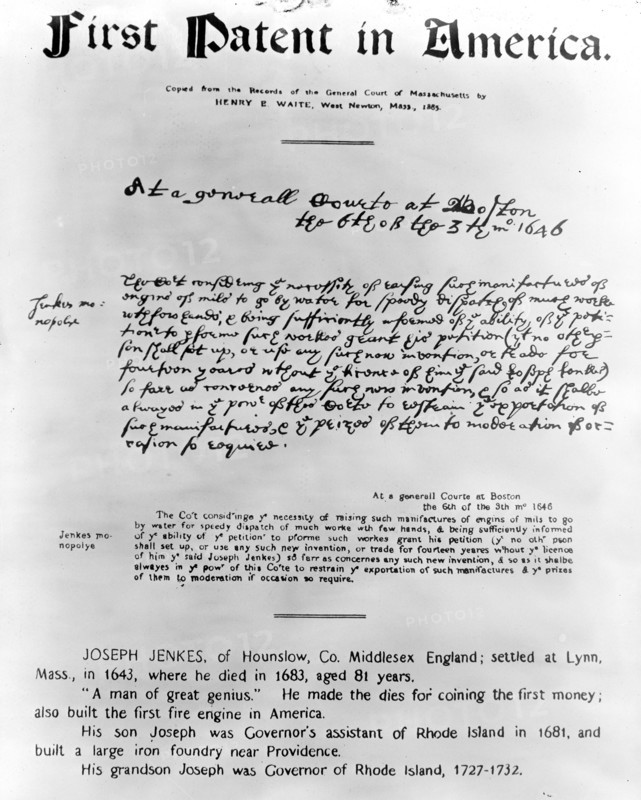 First Patent in America.
Copied from the Records of the General Court of Massachusetts by
HENRY E. WAITE, West Newton, Mass., 1885.
At a generall Courte at Boston
the 6th of the 3th mº 1646
Jenkes mo-
nopolye
The Co't considering yᵉ necessity of raising such manifactures of
engins of mils to go by water for speedy dispatch of much worke
wth few hands, & being sufficiently informed of yᵉ ability of yᵉ peti-
tion' to pforme such workes grant his petition (yt no othr p-
son shall set up, or use any such new invention, or trade for
fourteen yeares wthout yᵉ licence of him yᵉ said Joseph Jenkes)
so farr as concernes any such new invention, & so as it shalbe
alwayes in yᵉ powr of this Corte to restrain yᵉ exportation of
such manifactures, & yᵉ prizes of them to moderation if occ-
casion so require.
At a generall Courte at Boston
the 6th of the 3th mº 1646
Jenkes mo-
nopolye
The Co't consid'inge yᵉ necessity of raising such manifactures of engins of mils to go
by water for speedy dispatch of much worke wth few hands, & being sufficiently informed
of yᵉ ability of yᵉ petition' to pforme such workes grant his petition (yᵗ no othʳ pson
shall set up, or use any such new invention, or trade for fourteen yeares wʰout yᵉ licence
of him yᵉ said Joseph Jenkes) so farr as concernes any such new invention, & so as it shalbe
alwayes in yᵉ powʳ of this Co'te to restrain yᵉ exportation of such manifactures & yᵉ prizes
of them to moderation if occasion so require.
JOSEPH JENKES, of Hounslow, Co. Middlesex England; settled at Lynn,
Mass., in 1643, where he died in 1683, aged 81 years.
"A man of great genius." He made the dies for coining the first money;
also built the first fire engine in America.
His son Joseph was Governor's assistant of Rhode Island in 1681, and
built a large iron foundry near Providence.
His grandson Joseph was Governor of Rhode Island, 1727-1732.
PHOTO12